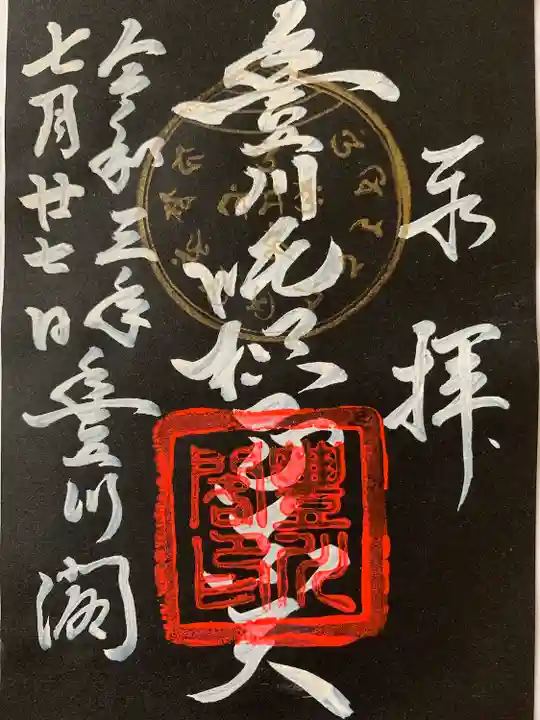 奉拝
豊川吒枳尼真天
令和三年
七月廿七日 豊川閣
豊川閣印